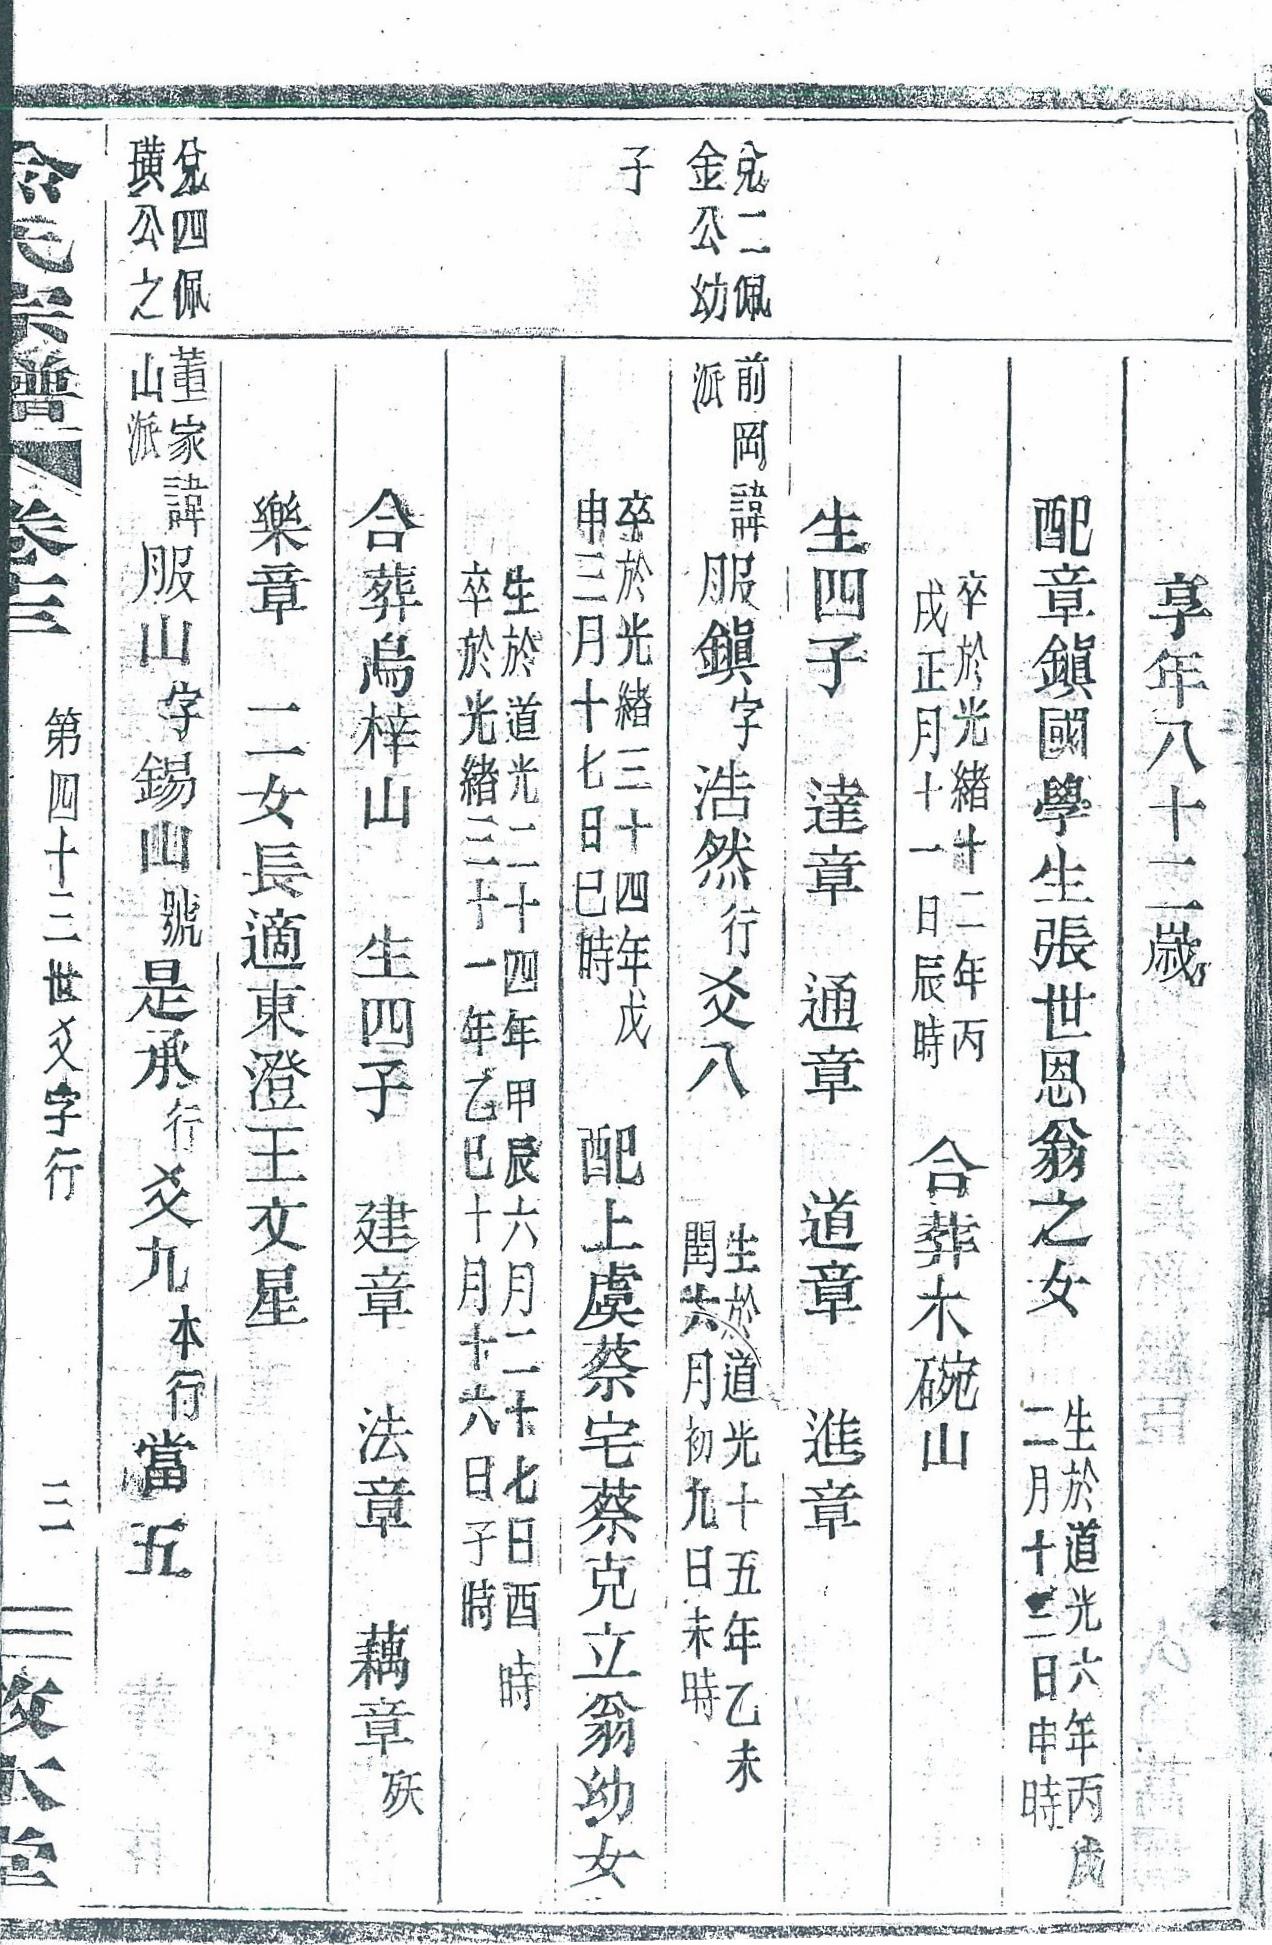 享年八十二歲
配章鎮國學生張世恩翁之女
生於道光六年丙戌
二月十三日申時
卒於光緒十二年丙
戌正月十一日辰時
合葬木碗山
生四子 達章 通章 道章 進章
兌二佩
金公幼
子
前岡諱
派
服鎮字浩然行爻八
生於道光十五年乙未
閏六月初九日未時
卒於光緒三十四年戊
申三月十七日巳時
配上虞蔡宅蔡克立翁幼女
生於道光二十四年甲辰六月二十七日酉時
卒於光緒三十一年乙巳十月十六日子時
合葬烏梓山 生四子 建章 法章 藕章殀
樂章 二女長適東澄王文星
兌四佩
璜公之
董家諱
山派
服山字錫山號是承行爻九本行當五
氏宗譜 卷三 第四十三世爻字行 三 敦本堂